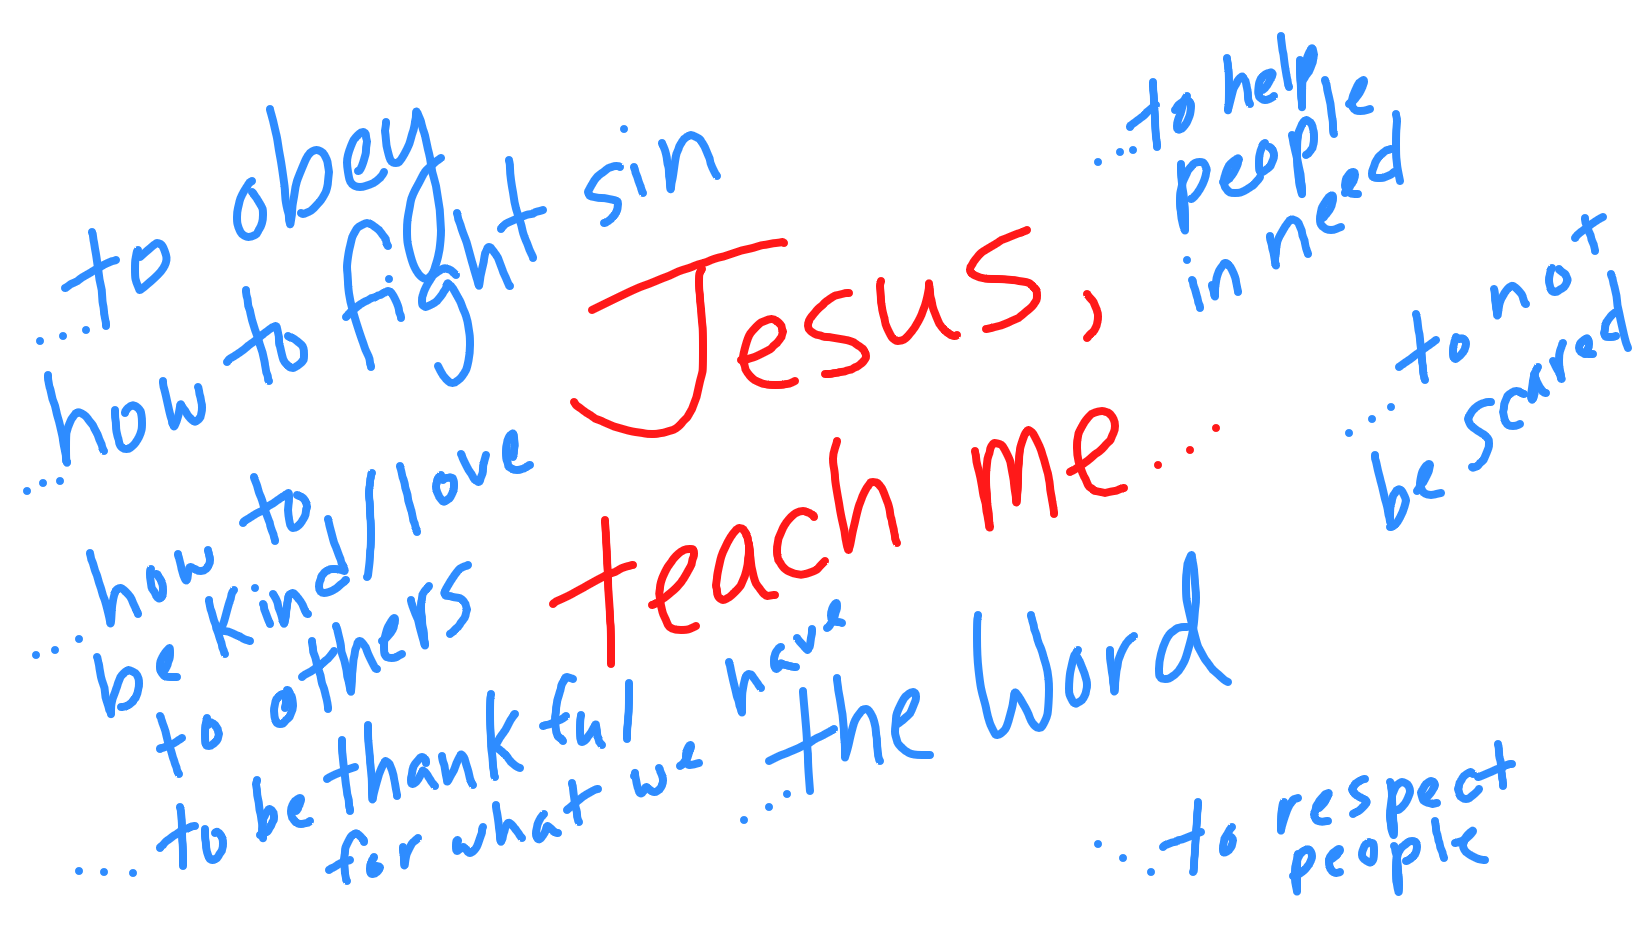 ...to obey
...how to fight sin
Jesus,
teach me...
...to help
people
in need
...to not
be scared
...how to
be kind/love
to others
...to be thankful
for what we have
...the Word
...to respect
people